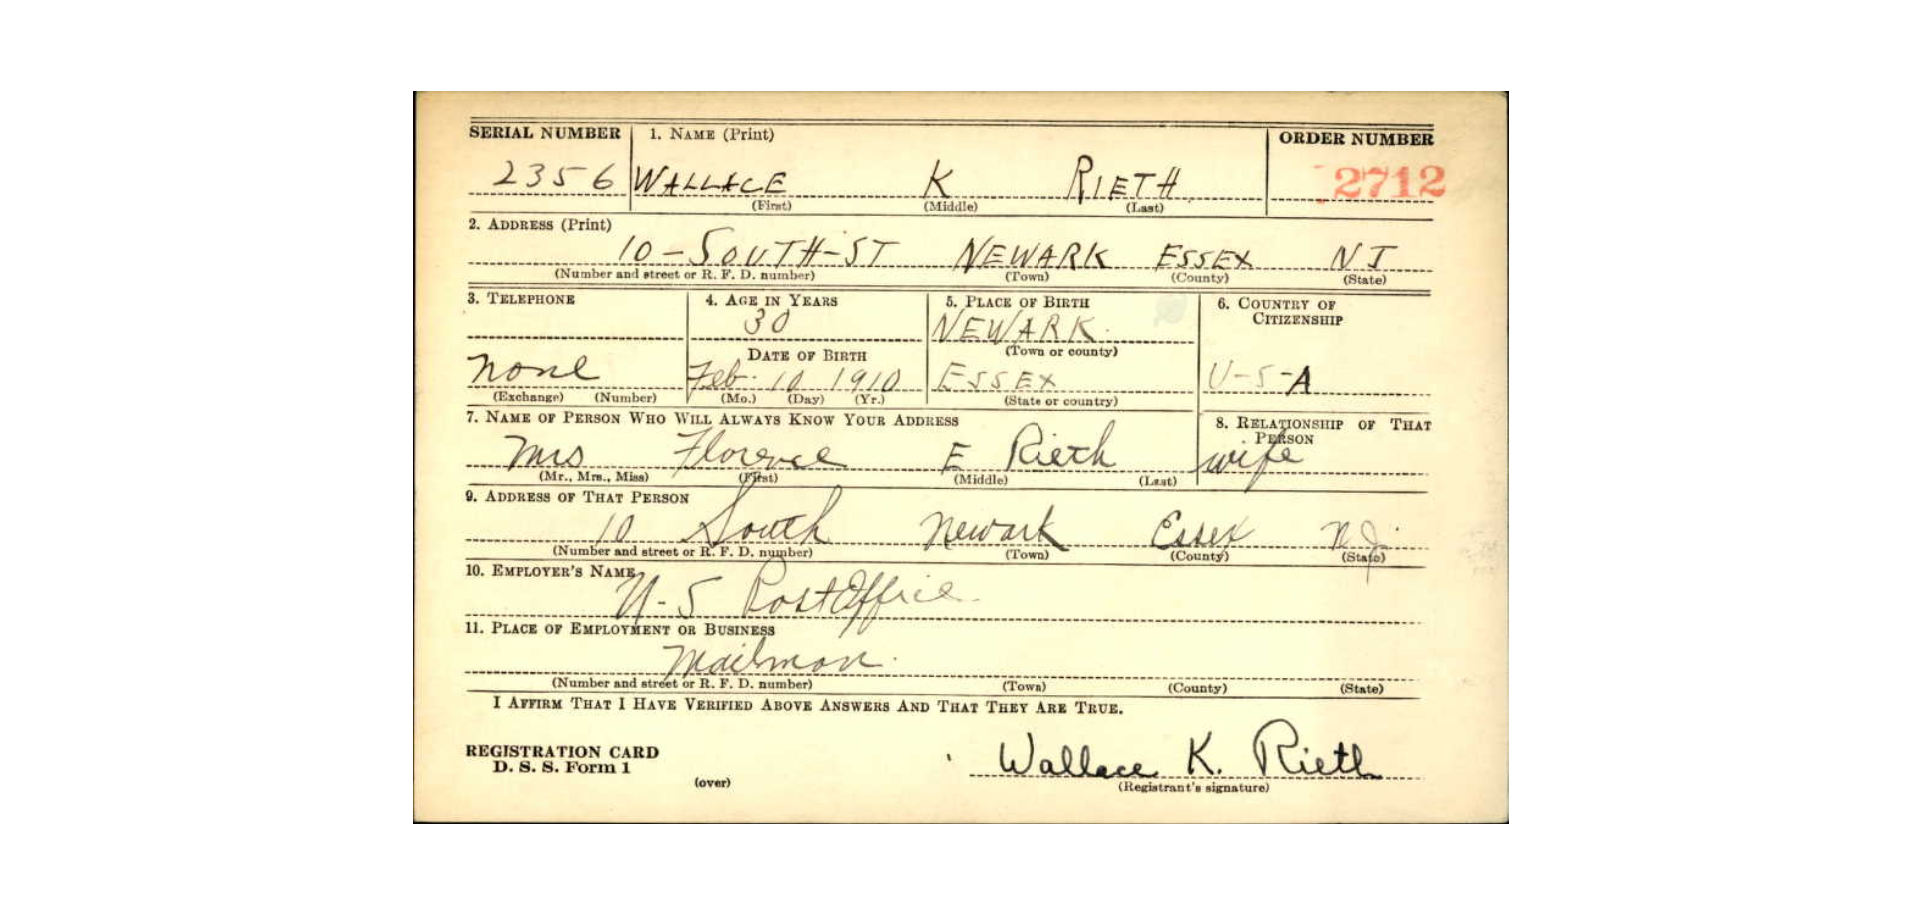 SERIAL NUMBER 1. NAME (Print) ORDER NUMBER
2356 WALLACE K RIETH 2712
(First) (Middle) (Last)
2. ADDRESS (Print)
10-SOUTH-ST NEWARK ESSEX NJ
(Number and street or R. F. D. number) (Town) (County) (State)
3. TELEPHONE 4. AGE IN YEARS 5. PLACE OF BIRTH 6. COUNTRY OF CITIZENSHIP
30 NEWARK
DATE OF BIRTH (Town or county)
none Feb. 10 1910 ESSEX U-S-A
(Exchange) (Number) (Mo.) (Day) (Yr.) (State or country)
7. NAME OF PERSON WHO WILL ALWAYS KNOW YOUR ADDRESS 8. RELATIONSHIP OF THAT PERSON
Mrs Florence E Rieth wife
(Mr., Mrs., Miss) (First) (Middle) (Last)
9. ADDRESS OF THAT PERSON
10 South Newark Essex NJ.
(Number and street or R. F. D. number) (Town) (County) (State)
10. EMPLOYER'S NAME
U-S PostOffice
11. PLACE OF EMPLOYMENT OR BUSINESS
Mailman.
(Number and street or R. F. D. number) (Town) (County) (State)
I AFFIRM THAT I HAVE VERIFIED ABOVE ANSWERS AND THAT THEY ARE TRUE.
REGISTRATION CARD
D. S. S. Form 1
(over)
Wallace K. Rieth
(Registrant's signature)